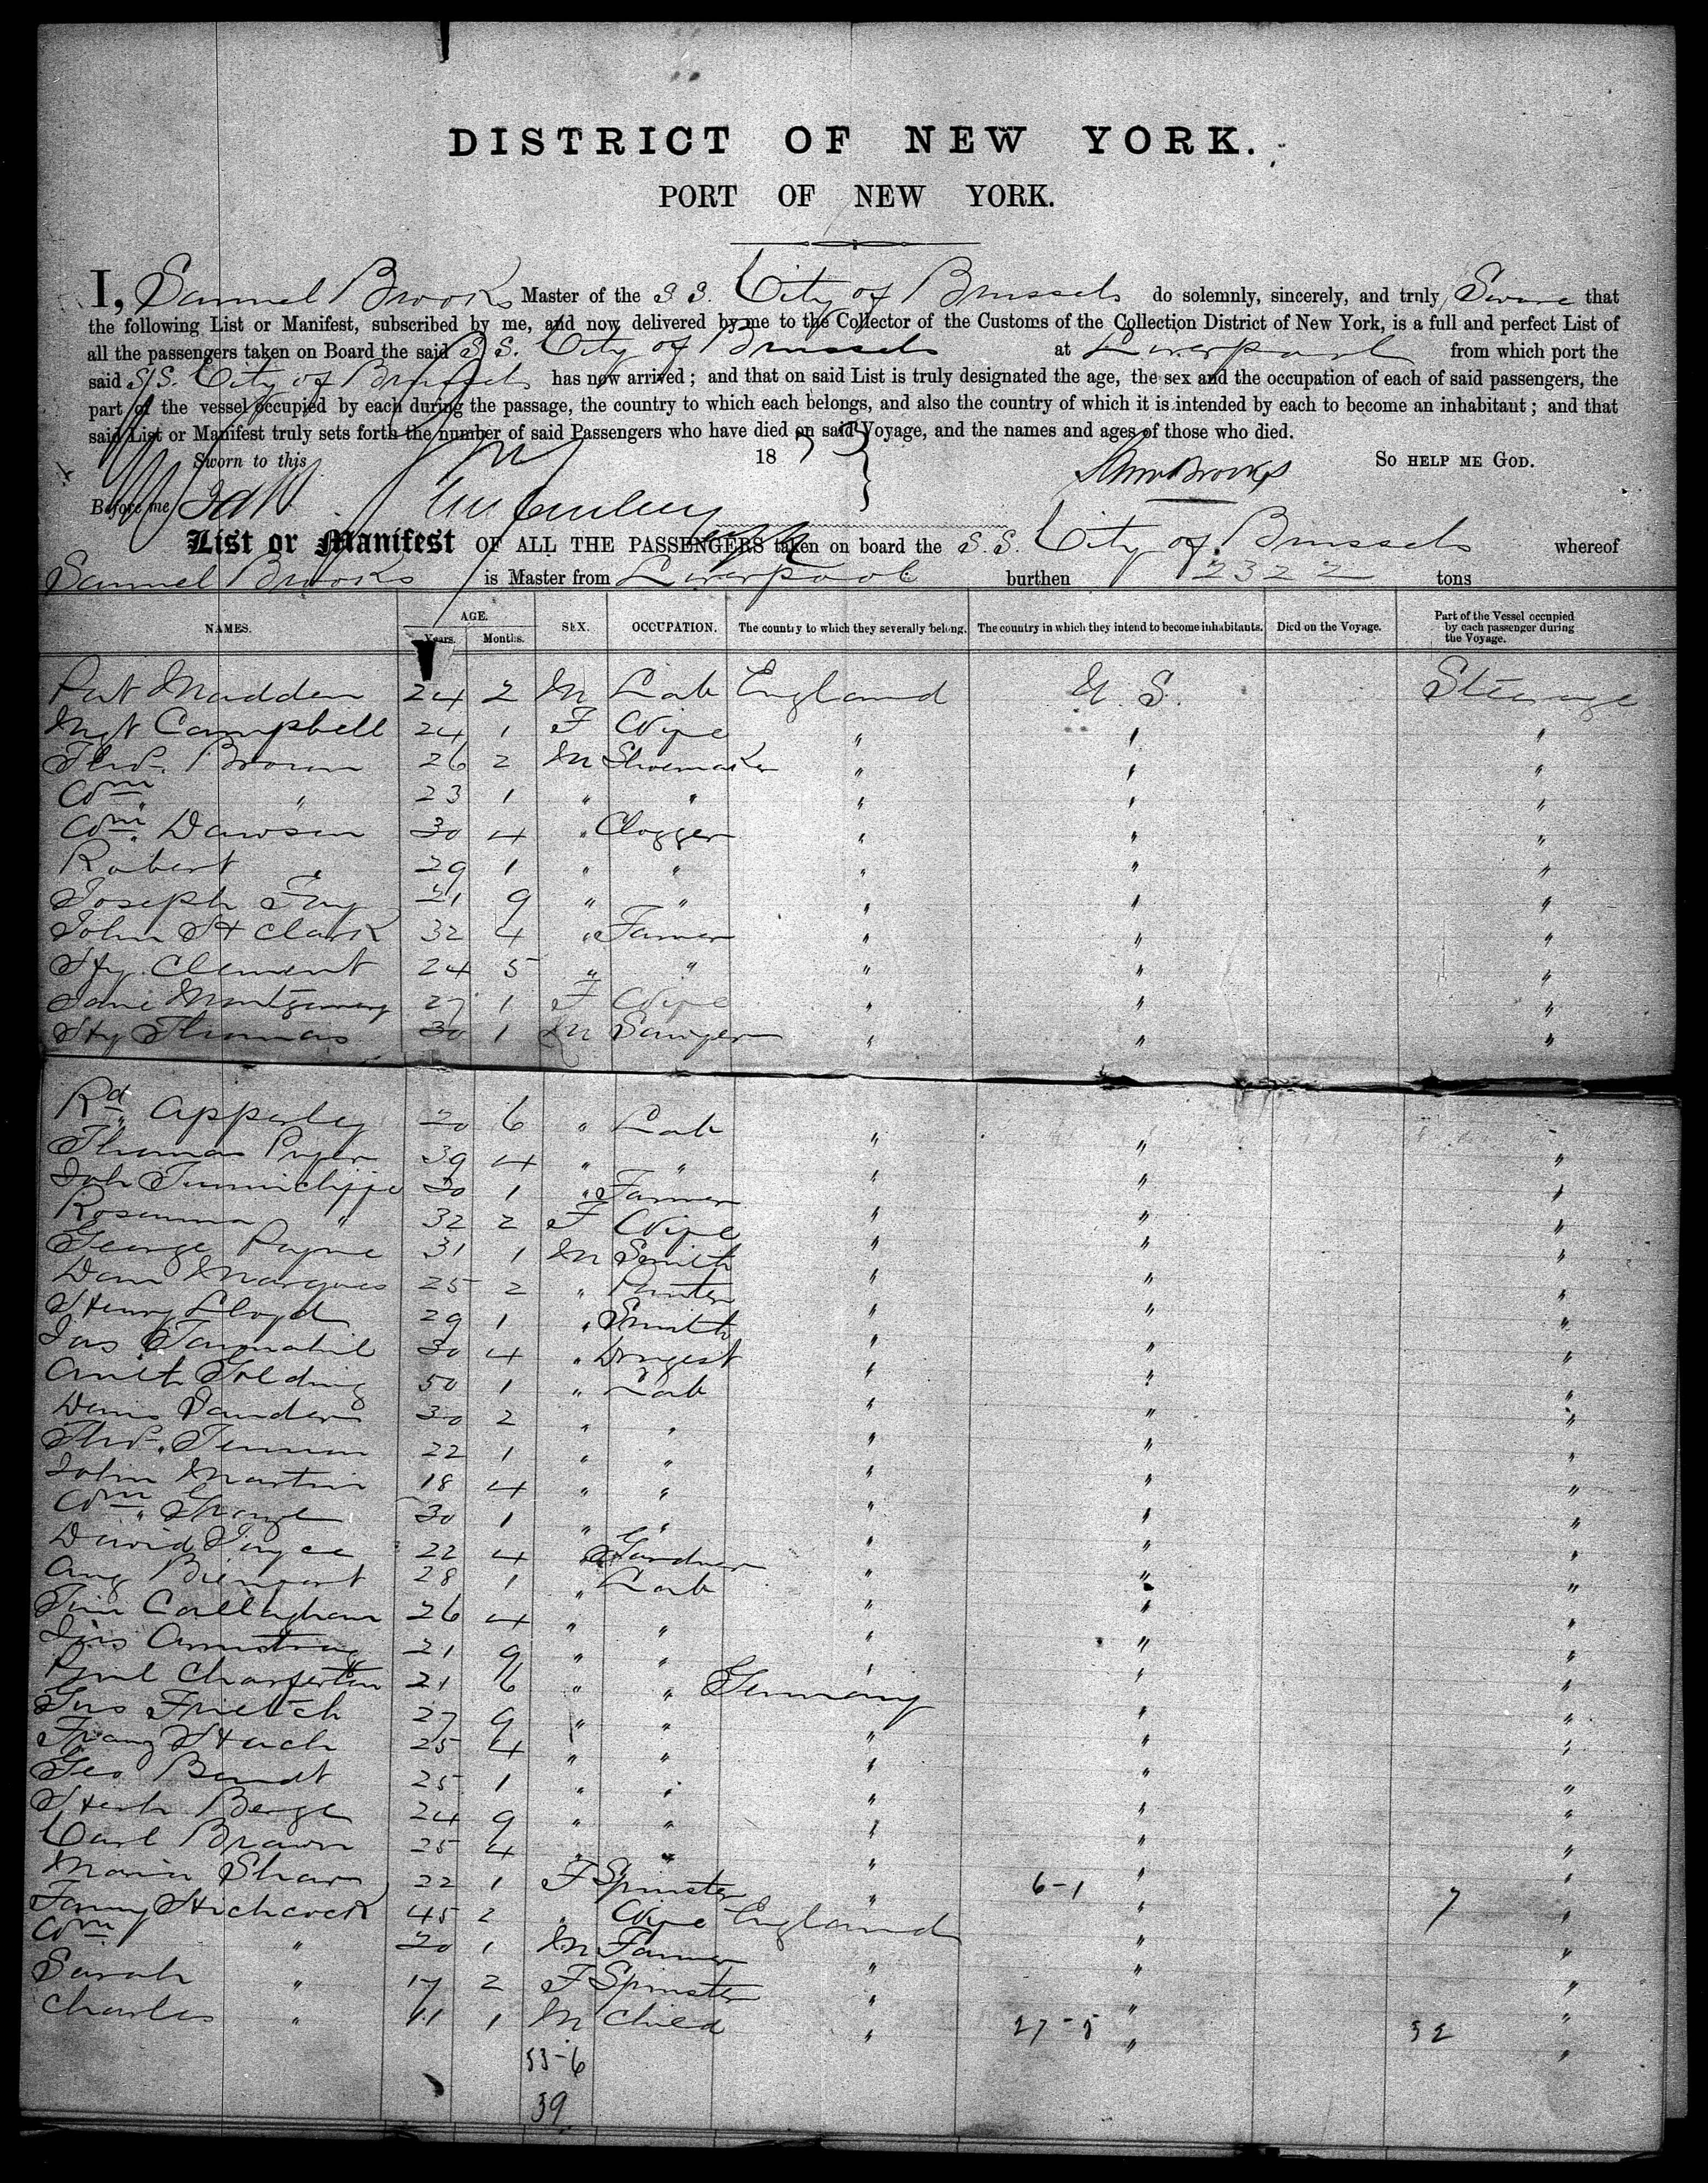 DISTRICT OF NEW YORK.
PORT OF NEW YORK.
I, Samuel Brooks Master of the S.S. City of Brussels do solemnly, sincerely, and truly Swear that
the following List or Manifest, subscribed by me, and now delivered by me to the Collector of the Customs of the Collection District of New York, is a full and perfect List of
all the passengers taken on Board the said S.S. City of Brussels at Liverpool from which port the
said S.S. City of Brussels has now arrived; and that on said List is truly designated the age, the sex and the occupation of each of said passengers, the
part of the vessel occupied by each during the passage, the country to which each belongs, and also the country of which it is intended by each to become an inhabitant; and that
said List or Manifest truly sets forth the number of said Passengers who have died on said Voyage, and the names and ages of those who died.
Sworn to this 1873 SO HELP ME GOD.
Before me Saml Brooks
List or Manifest OF ALL THE PASSENGERS taken on board the S.S. City of Brussels whereof
Samuel Brooks is Master from Liverpool burthen 2322 tons
NAMES. AGE. Years. Months. SEX. OCCUPATION. The country to which they severally belong. The country in which they intend to become inhabitants. Died on the Voyage. Part of the Vessel occupied by each passenger during the Voyage.
Pat Madden 24 2 M Lab England U.S. Steerage
Mgt Campbell 24 1 F Wife " " "
Thos. Brown 26 2 M Shoemaker " " "
Wm " 23 1 " " " " "
Wm Dawson 30 4 " Clogger " " "
Robert " 29 1 " " " " "
Joseph 21 9 " " " " "
John H Clark 32 4 " Farmer " " "
Hy. Clement 24 5 " " " " "
Jane Montgomery 27 1 F Wife " " "
Hy Thomas 30 1 M Sawyer " " "
Rd Apperley 20 6 " Lab " " "
Thomas Pryor 39 4 " " " " "
Joh Tunnicliffe 30 1 " Farmer " " "
Rosanna " 32 2 F Wife " " "
George Payne 31 1 M Smith " " "
Dan Marques 25 2 " Painter " " "
Henry Lloyd 29 1 " Smith " " "
Jas Tannahil 30 4 " Drugest " " "
Golding 50 1 " Lab " " "
Denis Sanders 30 2 " " " " "
Thos. 22 1 " " " " "
John Martin 18 4 " " " " "
Wm 30 1 " " " " "
David Joyce 22 4 " Gardner " " "
Aug 28 1 " Lab " " "
Tim Callaghan 26 4 " " " " "
Jas Armstrong 21 9 " " " " "
21 6 " " Germany " "
Jus Frietch 27 9 " " " " "
Franz 25 4 " " " " "
Geo Bendt 25 1 " " " " "
Herh Berge 24 9 " " " " "
Carl Brawn 25 4 " " " " "
Maria Shaw 22 1 F Spinster " 6-1 " 7 "
Fanny Hichcock 45 2 " Wife England " "
Wm " 20 1 M Farmer " " "
Sarah " 17 2 F Spinster " " "
Charles " 11 1 M Child " 27-5 " 32 "
33-6
39